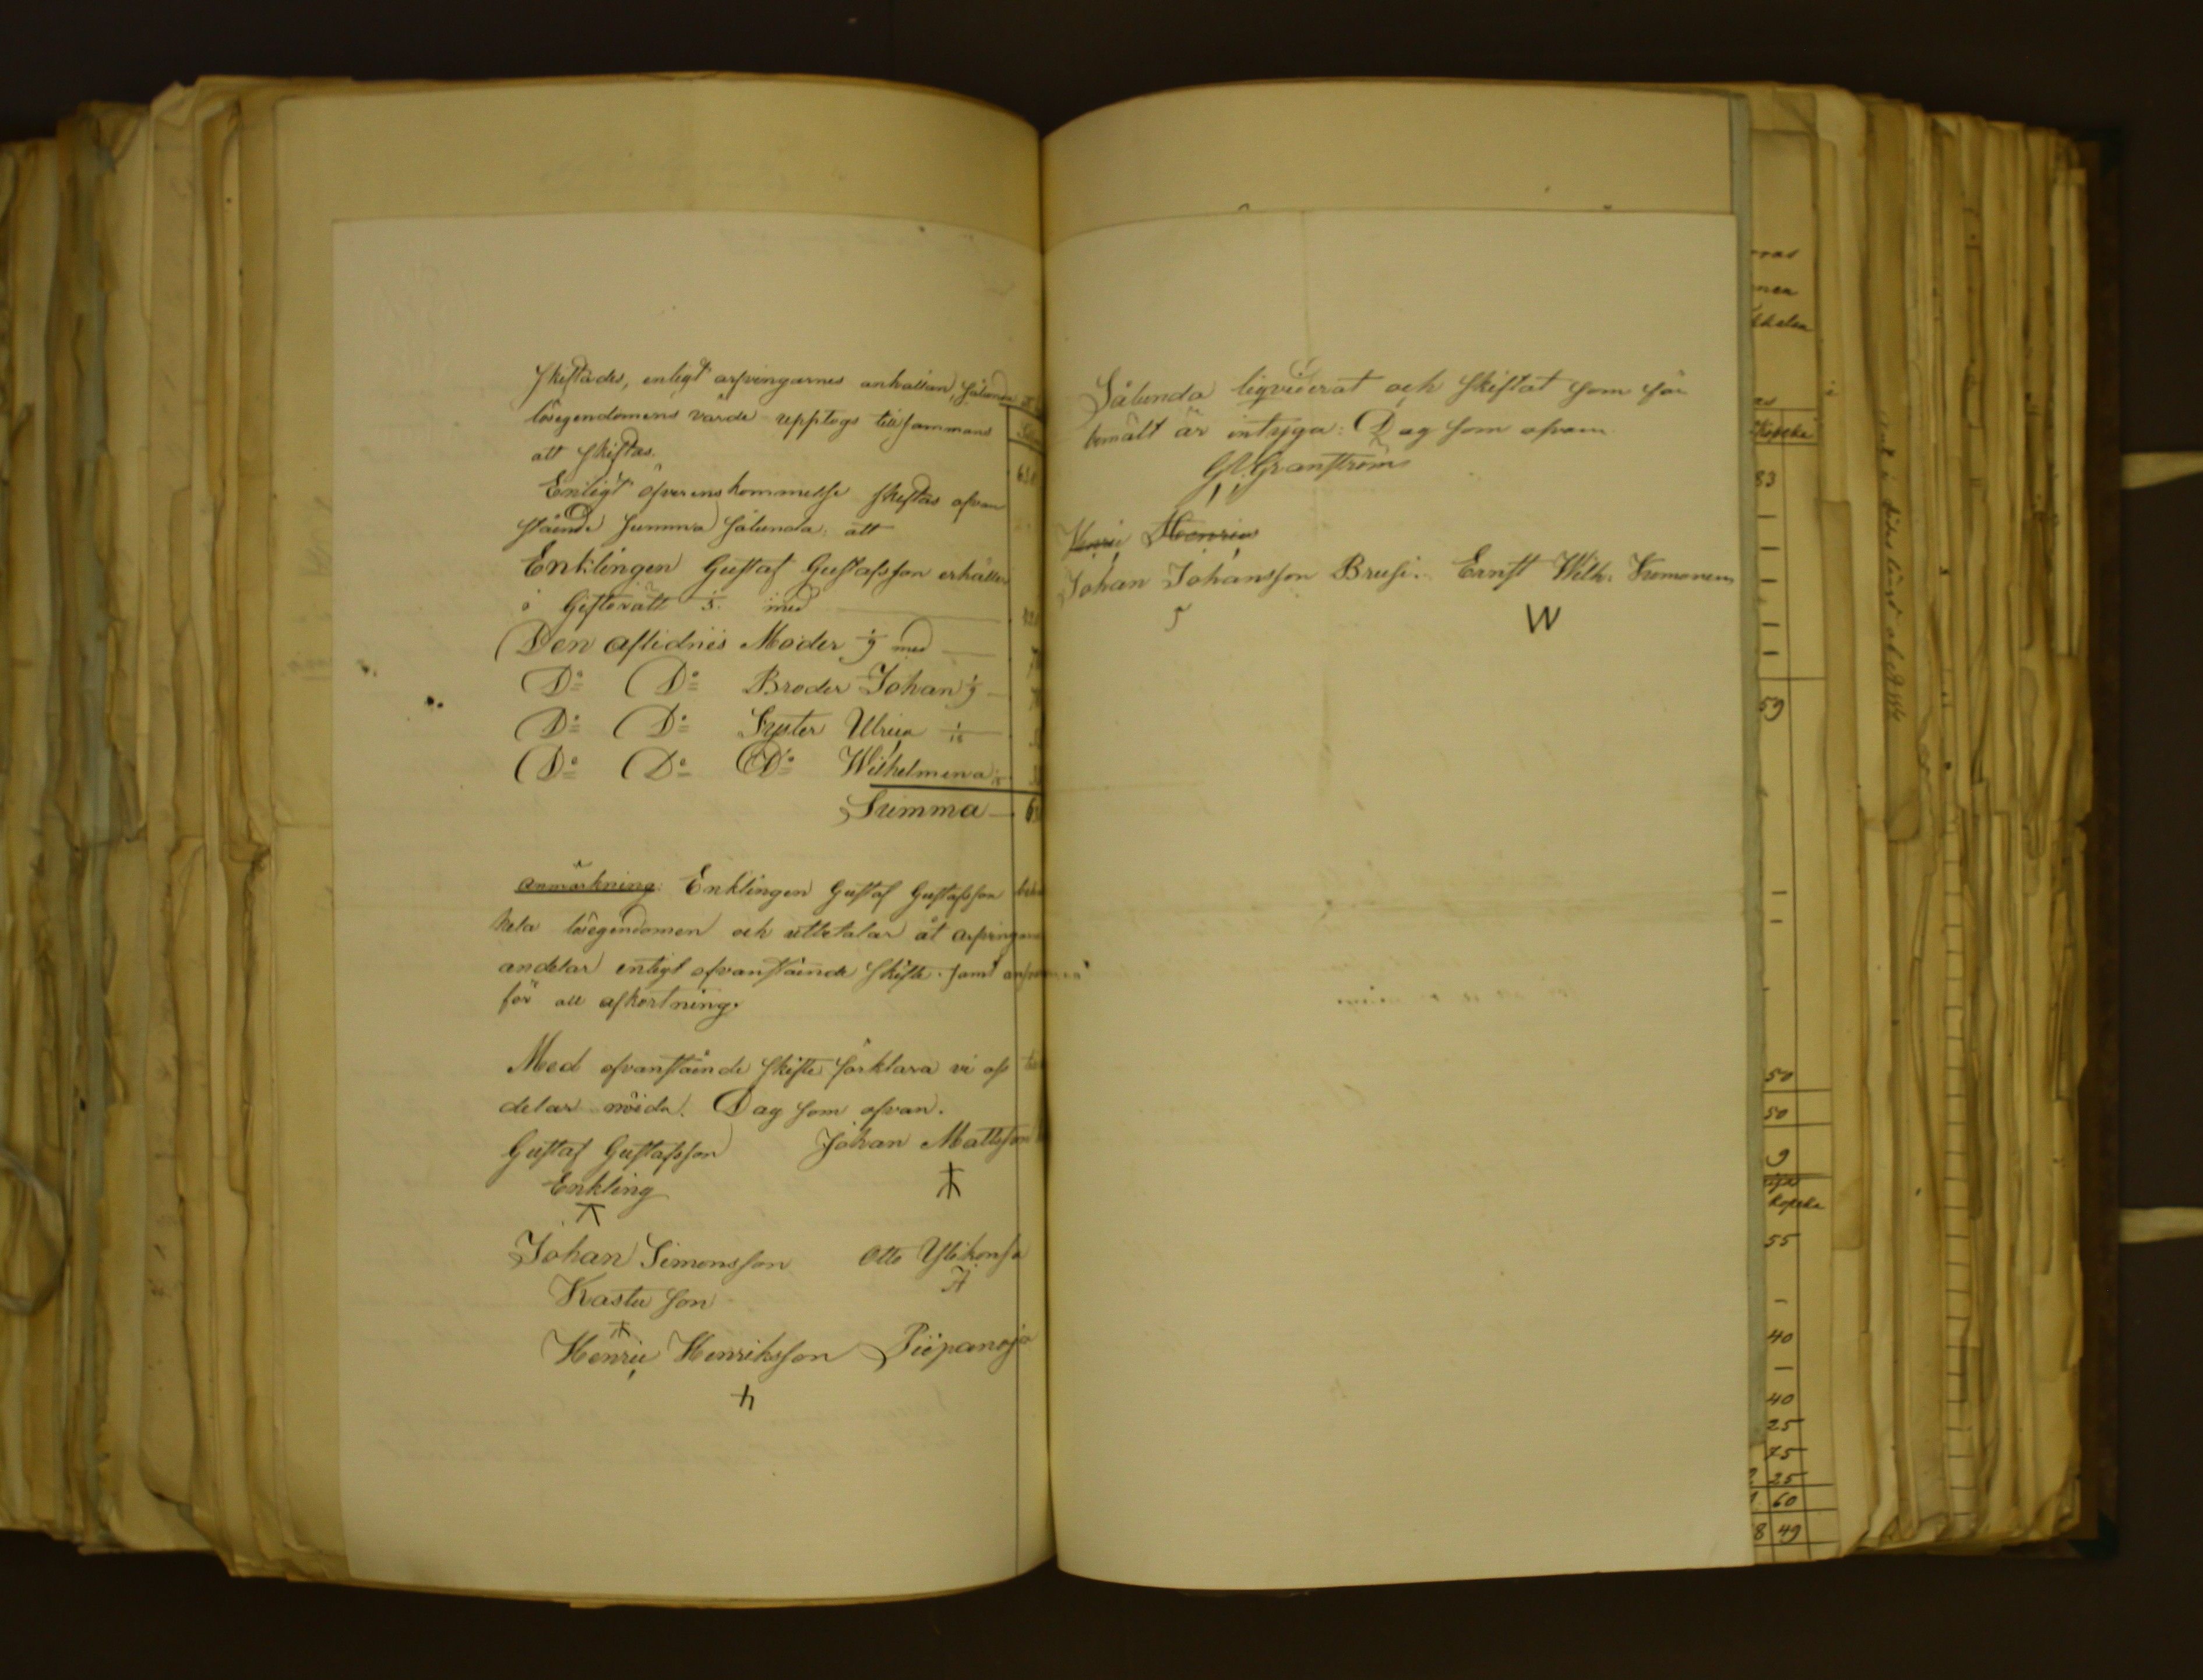 skiftades, enligt arfvingarnes anhållan, sålunda
lösegendomens värde upptogs tillsammans
att skiftas.
Enligt öfverenskommelse skiftas ofvan
stående summa sålunda: att
Enklingen Gustaf Gustafsson erhåller
i Giftorätt med
Den aflidnes Moder 1/9 med
Do Do Broder Johan 1/9
Do Do Syster Ulrica 1/18
Do Do Do Wilhelmina 1/18
Summa
Anmärkning: Enklingen Gustaf Gustafsson
hela lösegendomen och utbetalar åt arfvingarne
andelar enligt ofvanstående skifte samt
för all afkortning.
Med ofvanstående skifte förklara vi oss
delar nöida. Dag som ofvan.
Gustaf Gustafsson Johan Mattsson
Enkling
Johan Simonsson Otto Ylikonsa
Kastu son
Henric Henriksson Piipanoja
Sålunda liqviderat och skiftat som för
bemält är intyga: Dag som ofvan
Gl. Granström
Henric Henric
Johan Johansson Brusi. Ernst Wilh.
W
Kopeka
83
59
50
50
9
Kopeka
55
40
40
25
75
25
60
8 49